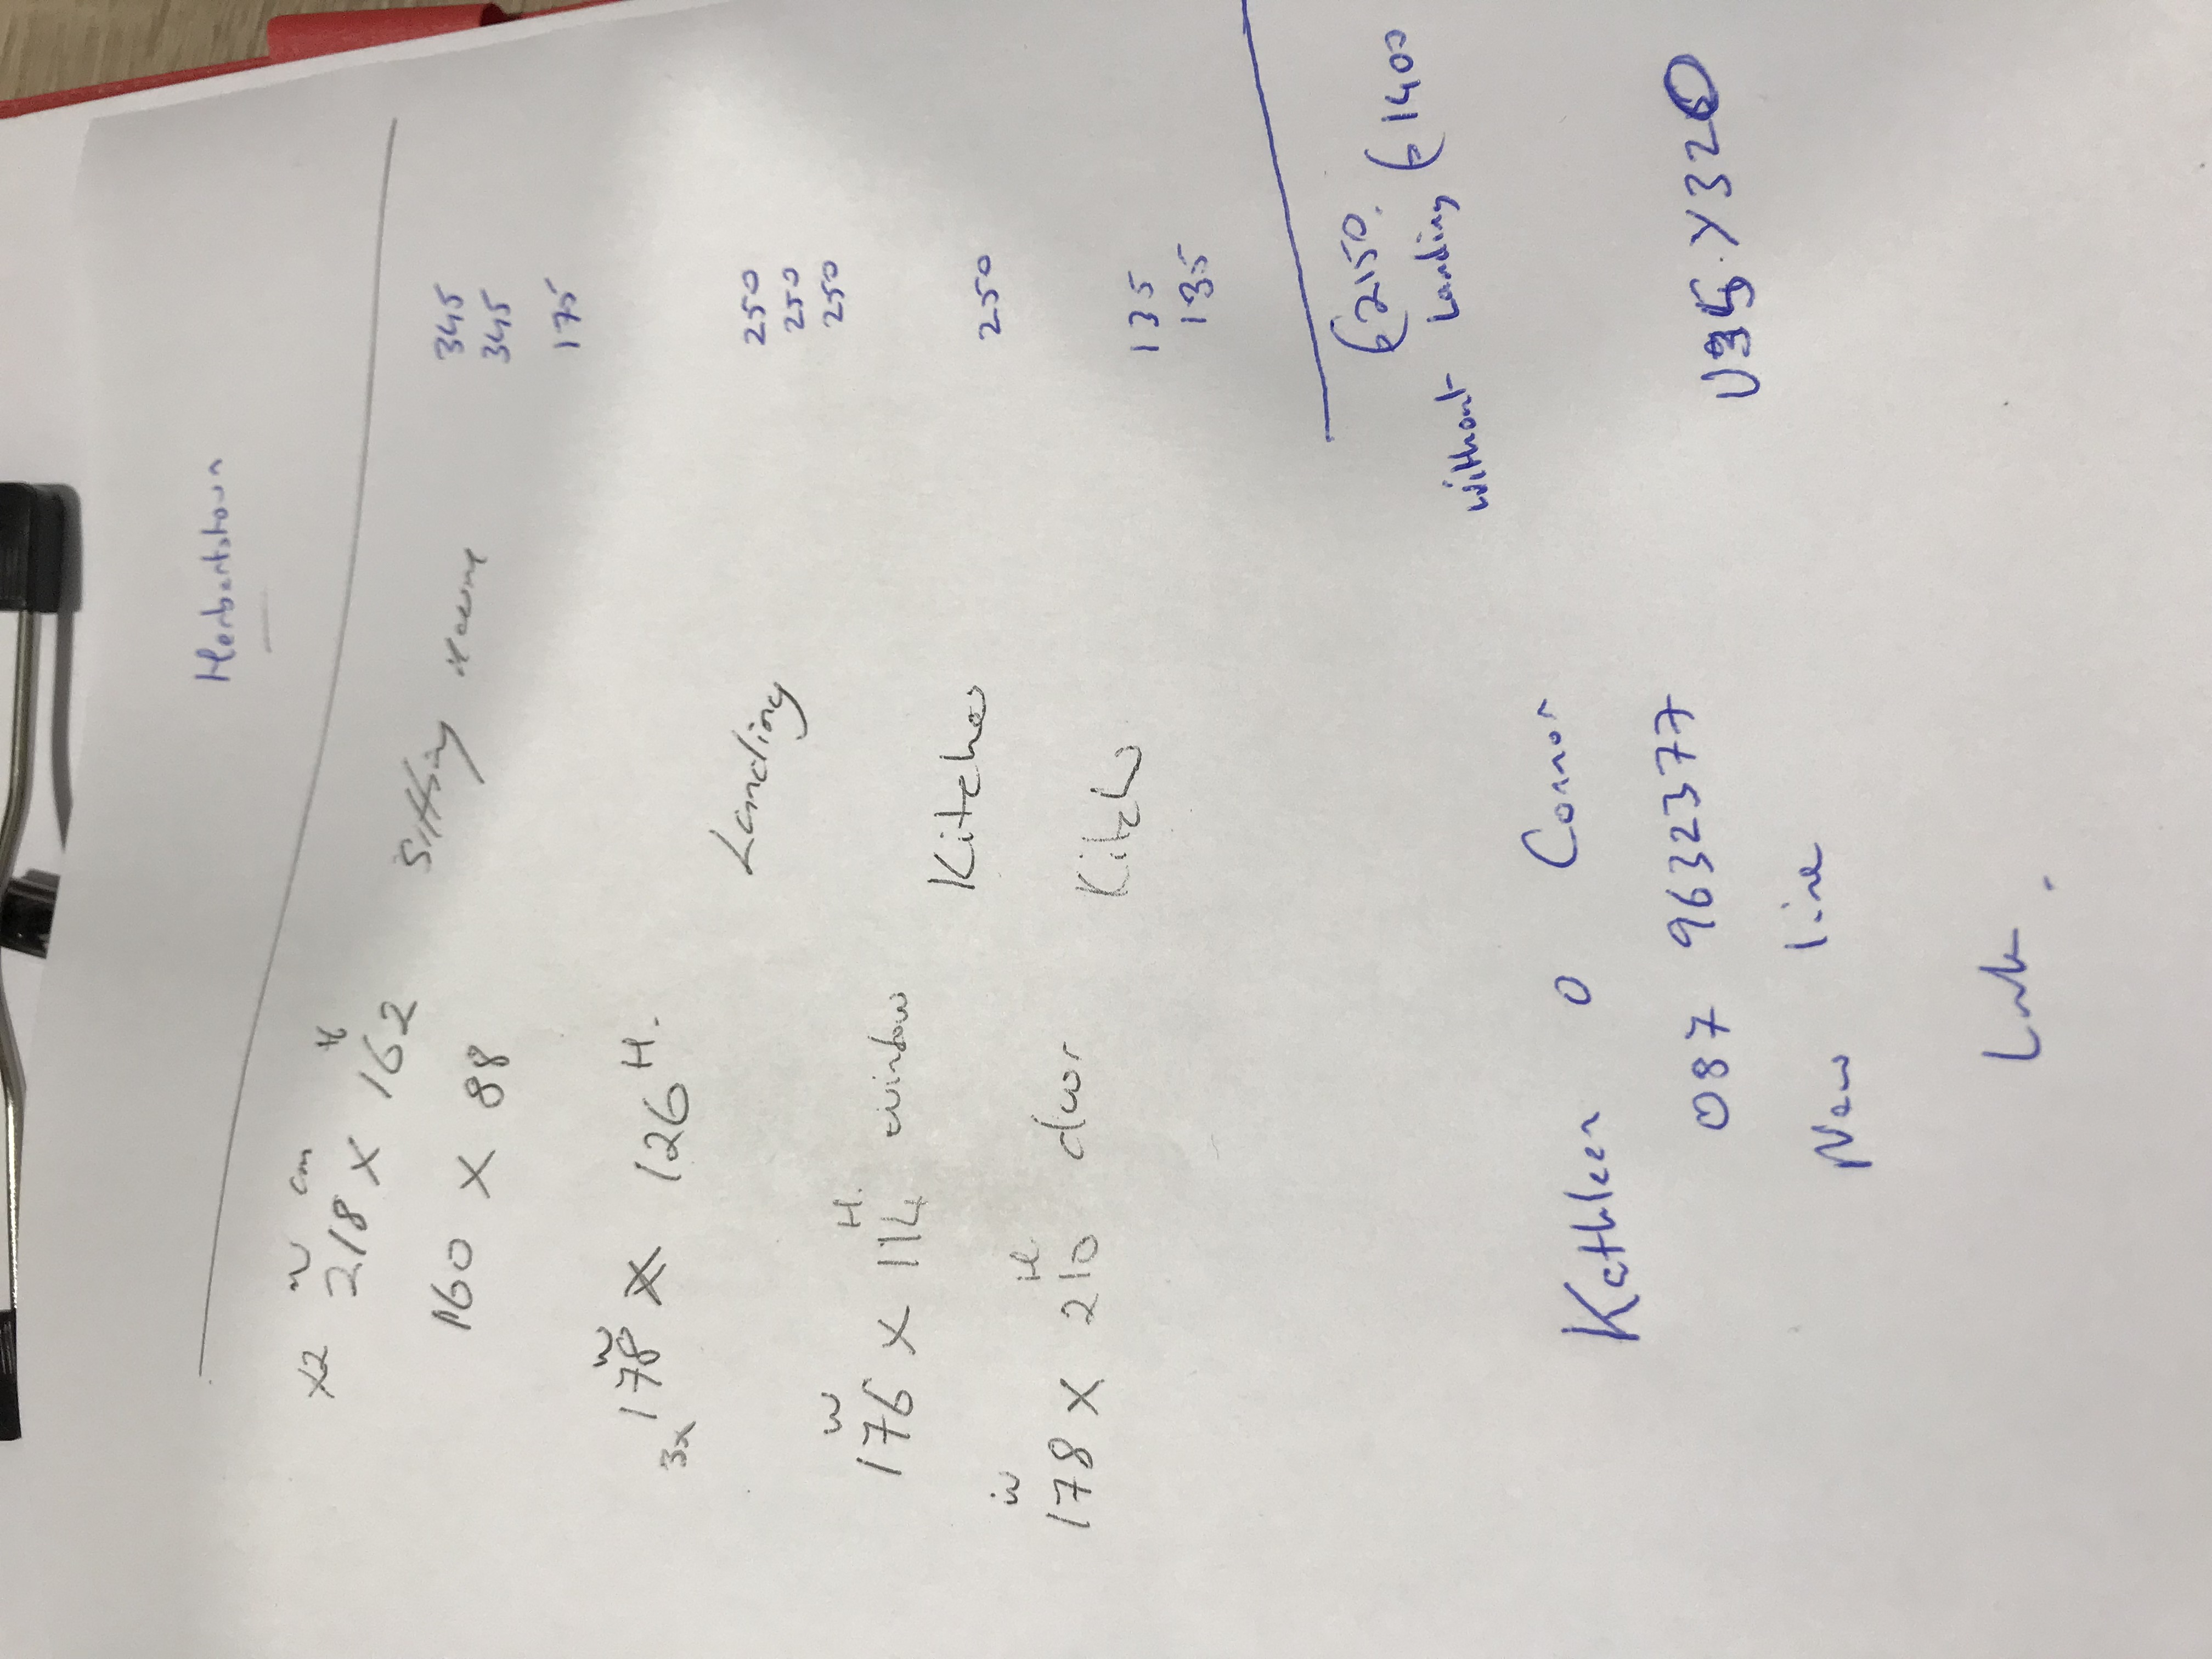 Herbertstown
x2 W cm H
218 x 162 Sitting room 345
345
160 x 88 175
W
3x 178 x 126 H. Landing 250
250
250
W H.
176 x 114 window Kitchen 250
W H
178 x 210 door Kitch 135
135
€2150.
without Landing €1400
Kathleen O Connor
087 9632377 V35.Y320
New line